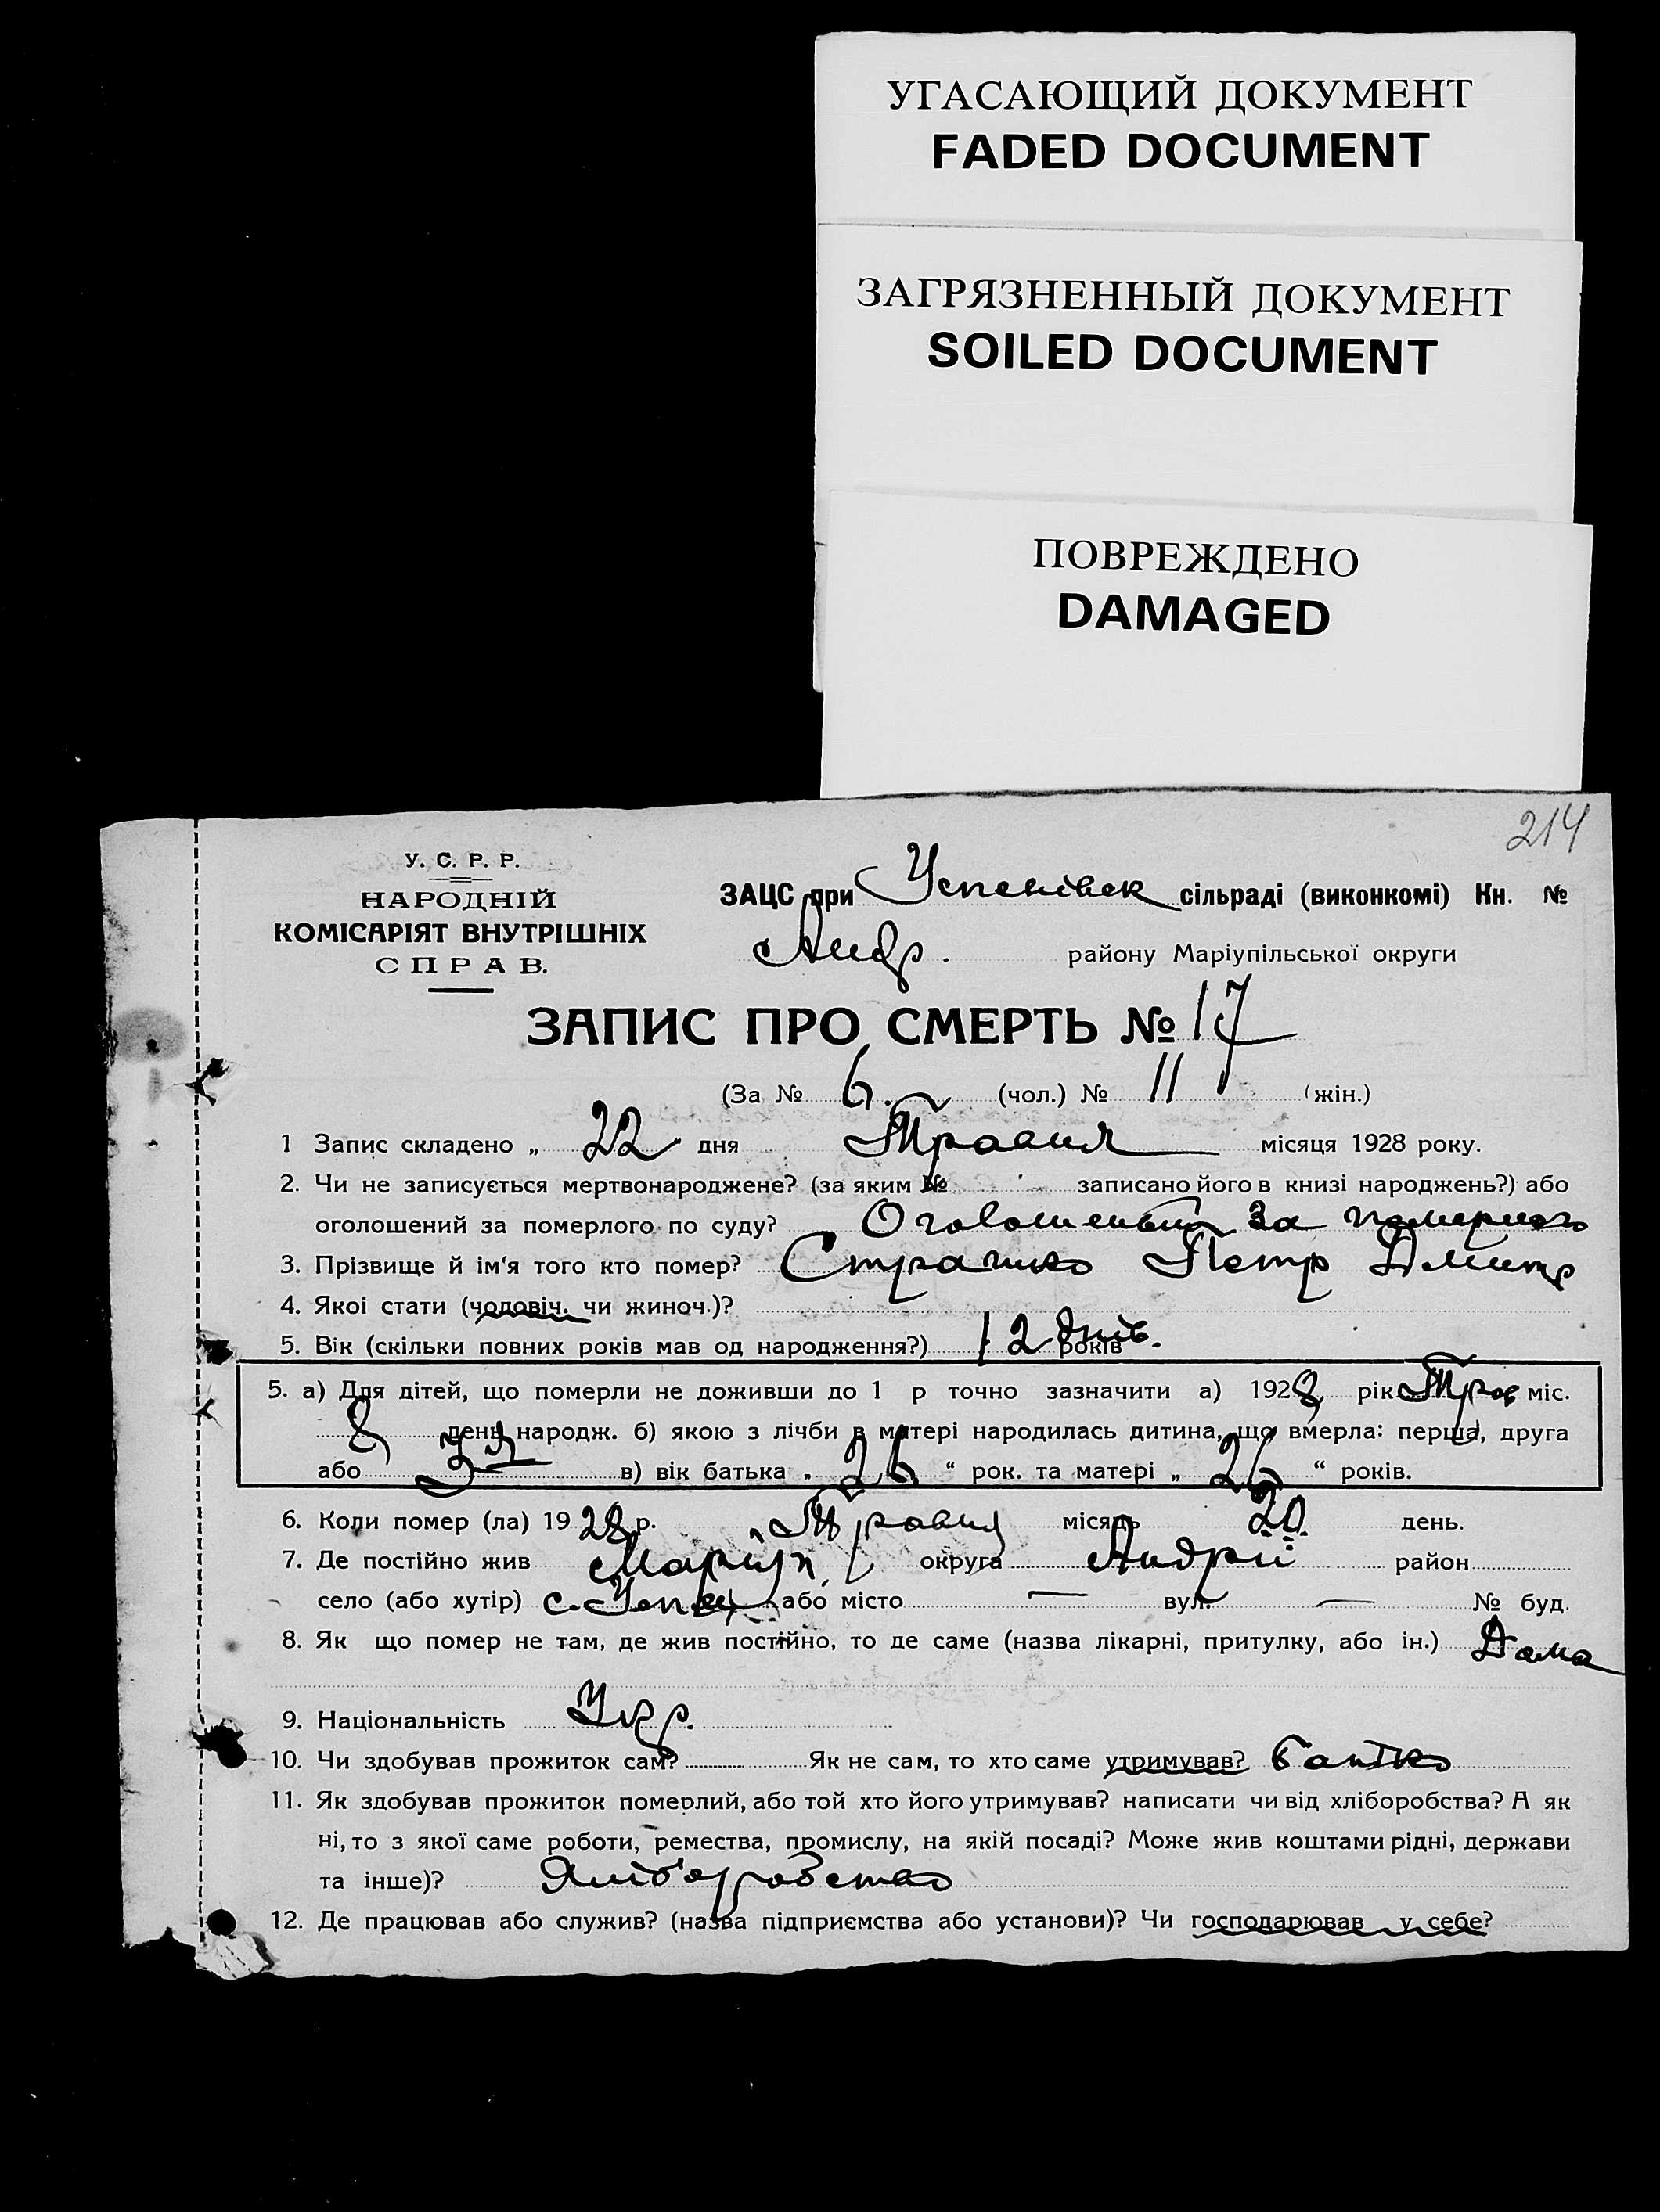 УГАСАЮЩИЙ ДОКУМЕНТ
FADED DOCUMENT
ЗАГРЯЗНЕННЫЙ ДОКУМЕНТ
SOILED DOCUMENT
ПОВРЕЖДЕНО
DAMAGED
214
У. С. Р. Р.
НАРОДНІЙ
КОМІСАРІЯТ ВНУТРІШНІХ
СПРАВ.
ЗАЦС при Успенівск сільраді (виконкомі) Кн. №
Андр. району Маріупільської округи
ЗАПИС ПРО СМЕРТЬ № 17
(За № 6. (чол.) № 11 (жін.)
1 Запис складено „ 22 " дня Травня місяця 1928 року.
2. Чи не записується мертвонароджене? (за яким № записано його в книзі народжень?) або
оголошений за померлого по суду? за померлого
3. Прізвище й ім'я того хто помер? Страшко Петр Дмитр
4. Якої стати (чоловіч. чи жиноч.)?
5. Вік (скільки повних років мав од народження?) 12 днів. років
5. а) Для дітей, що померли не доживши до 1 р точно зазначити а) 1928 рік Трав міс.
8 день народж. б) якою з лічби в матері народилась дитина, що вмерла: перша, друга
або 3 в) вік батька „ 26 " рок. та матері „ 26 " років.
6. Коли помер (ла) 1928 р. Травня місяць 20 день.
7. Де постійно жив Маріуп. округа Андрії район
село (або хутір) с. Успен або місто — вул. — № буд.
8. Як що помер не там, де жив постійно, то де саме (назва лікарні, притулку, або ін.) Дома
9. Національність Укр.
10. Чи здобував прожиток сам? Як не сам, то хто саме утримував? батько
11. Як здобував прожиток померлий, або той хто його утримував? написати чи від хліборобства? А як
ні, то з якої саме роботи, ремества, промислу, на якій посаді? Може жив коштами рідні, держави
та інше)?
12. Де працював або служив? (назва підприємства або установи)? Чи господарював у себе?